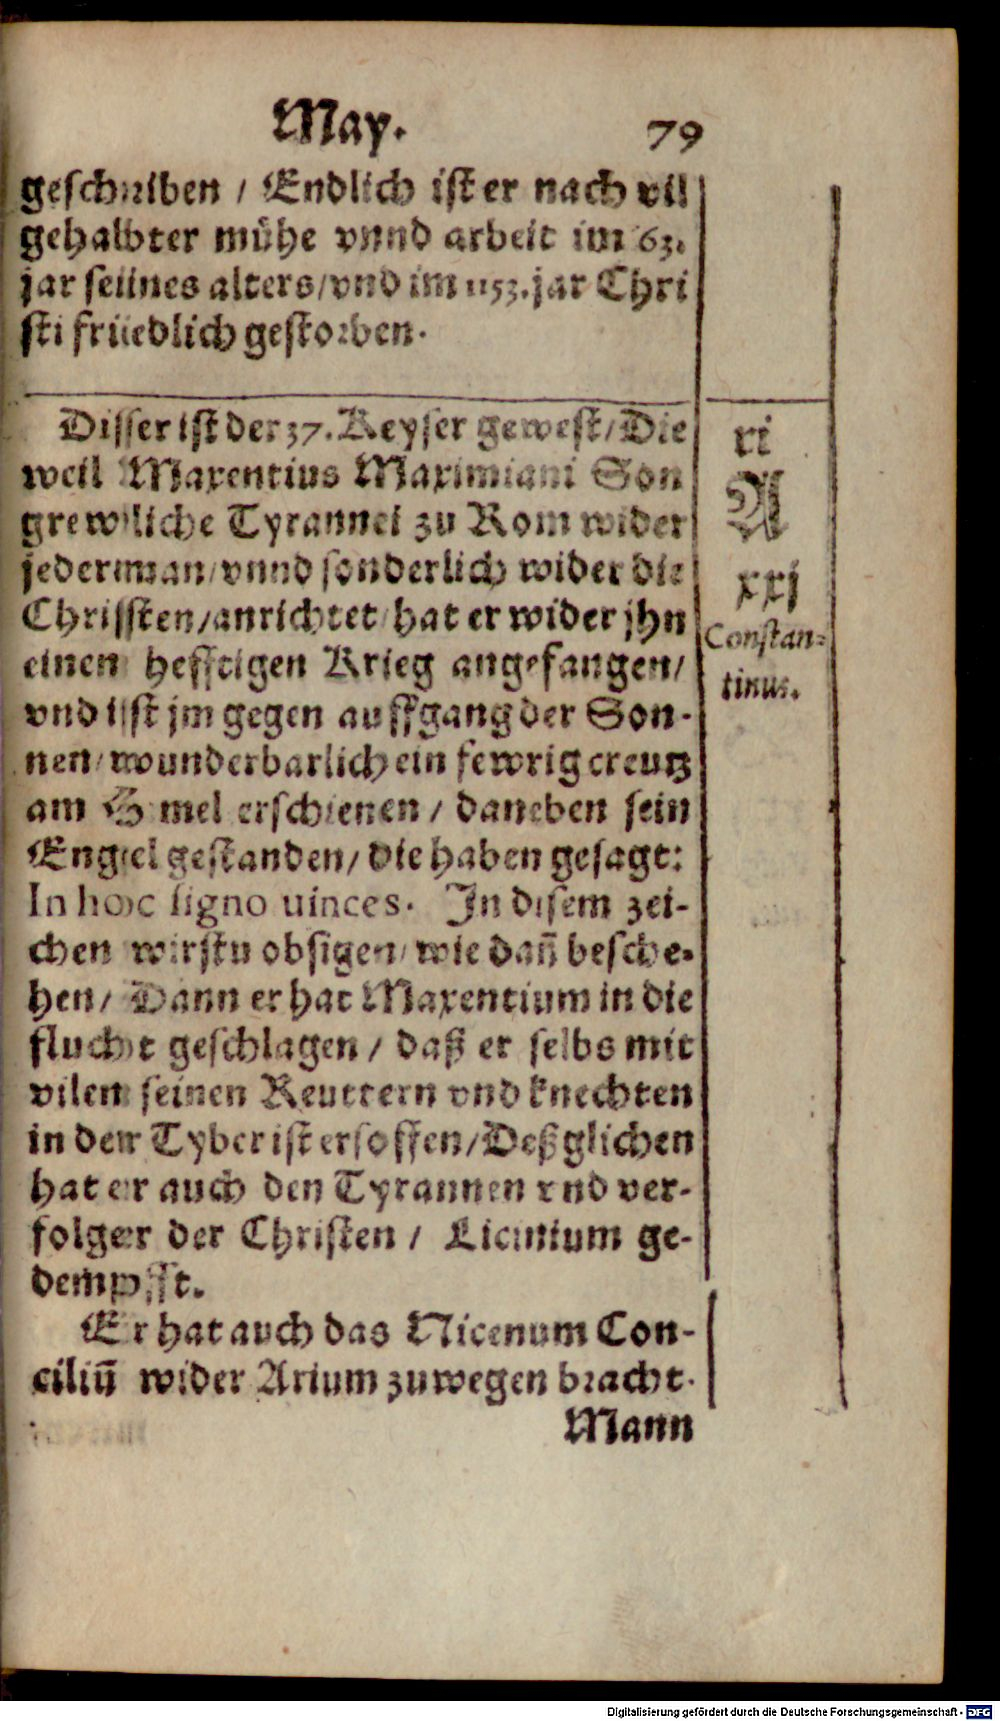 May. 79
geschriben / Endlich ist er nach vil
gehalbter mühe vnnd arbeit im 63.
jar seiines alters/vnd im 1153.jar Chri
sti friiedlich gestorben.
Disser ist der 37.Keyser gewest/Die
weil Maxentius Maximiani Son
grewliche Tyrannei zu Rom wider
jederman/vnnd sonderlich wider die
Chrissten/anrichtet/hat er wider jhn
einen hefftigen Krieg angefangen/
vnd iist jm gegen auffgang der Son-
nen/wunderbarlich ein fewrig creutz
am mel erschienen / daneben sein
Engel gestanden/die haben gesagt:
In hoc signo uinces. In disem zei-
chen wirstu obsigen/wie dañ besche-
hen/ Dann er hat Maxentium in die
flucht geschlagen / daß er selbs mit
vilen seinen Reuttern vnd knechten
in der Tyber ist ersoffen/Deßglichen
hat er auch den Tyrannen vnd ver-
folger der Christen / Licinium ge-
dempfft.
Er hat auch das Nicenum Con-
ciliū wider Arium zuwegen bracht.
Mann
xi
A
xxj
Constan-
tinus.
Digitalisierung gefördert durch die Deutsche Forschungsgemeinschaft - DFG